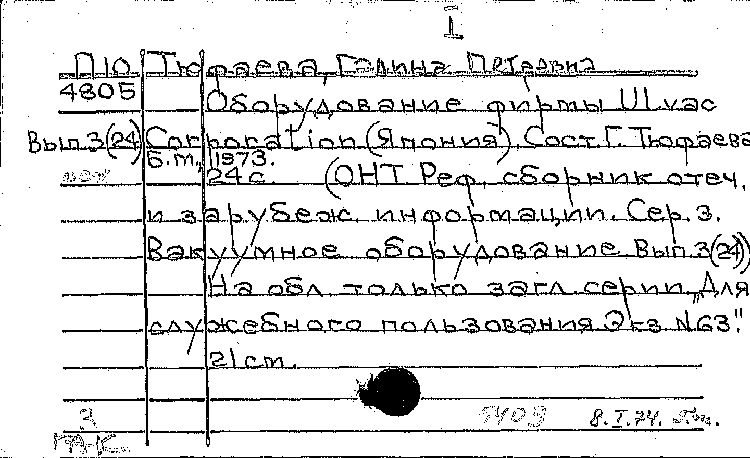 I
П10 Тюфаева, Галина Петровна
4805
Оборудование фирмы ULvac
Вып.3(24) Corporation (Япония). Сост. Г. Тюфаева
Б.м., 1973.
24 с. (ОНТ Реф. сборник отеч.
и зарубеж. информации. Сер. 3.
Вакуумное оборудование. Вып.3(24))
На обл. только загл. серии. „Для
служебного пользования. Экз. N 63."
21 cm.
3 5409 8.I.74.